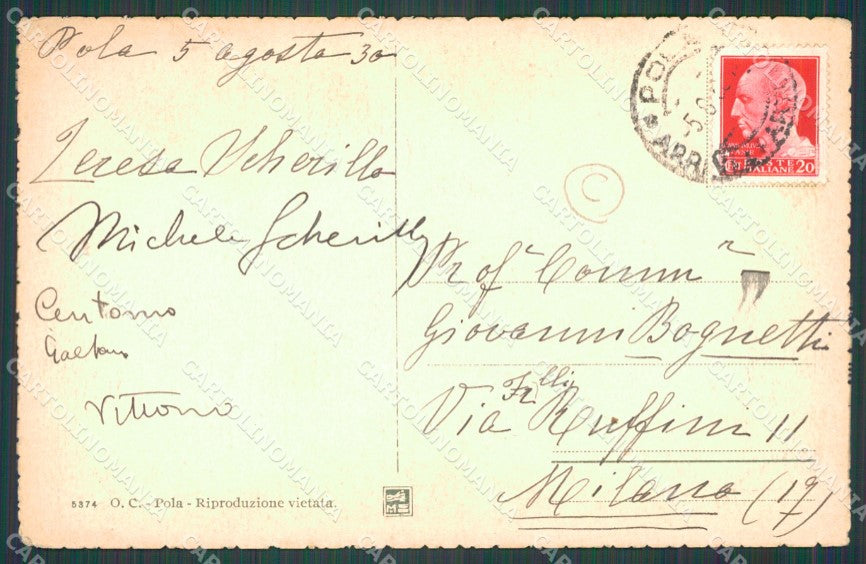 Pola 5 agosto 30
Teresa Scherillo
Michele Scherillo
Centomo
Gaetano
Vittorio
5374 O. C. - Pola - Riproduzione vietata.
POLA
ARR
POSTE
ITALIANE 20
C
Prof Comm
Giovanni Bognetti
Via Flli Ruffini 11
Milano (17)
CARTOLINOMANIA